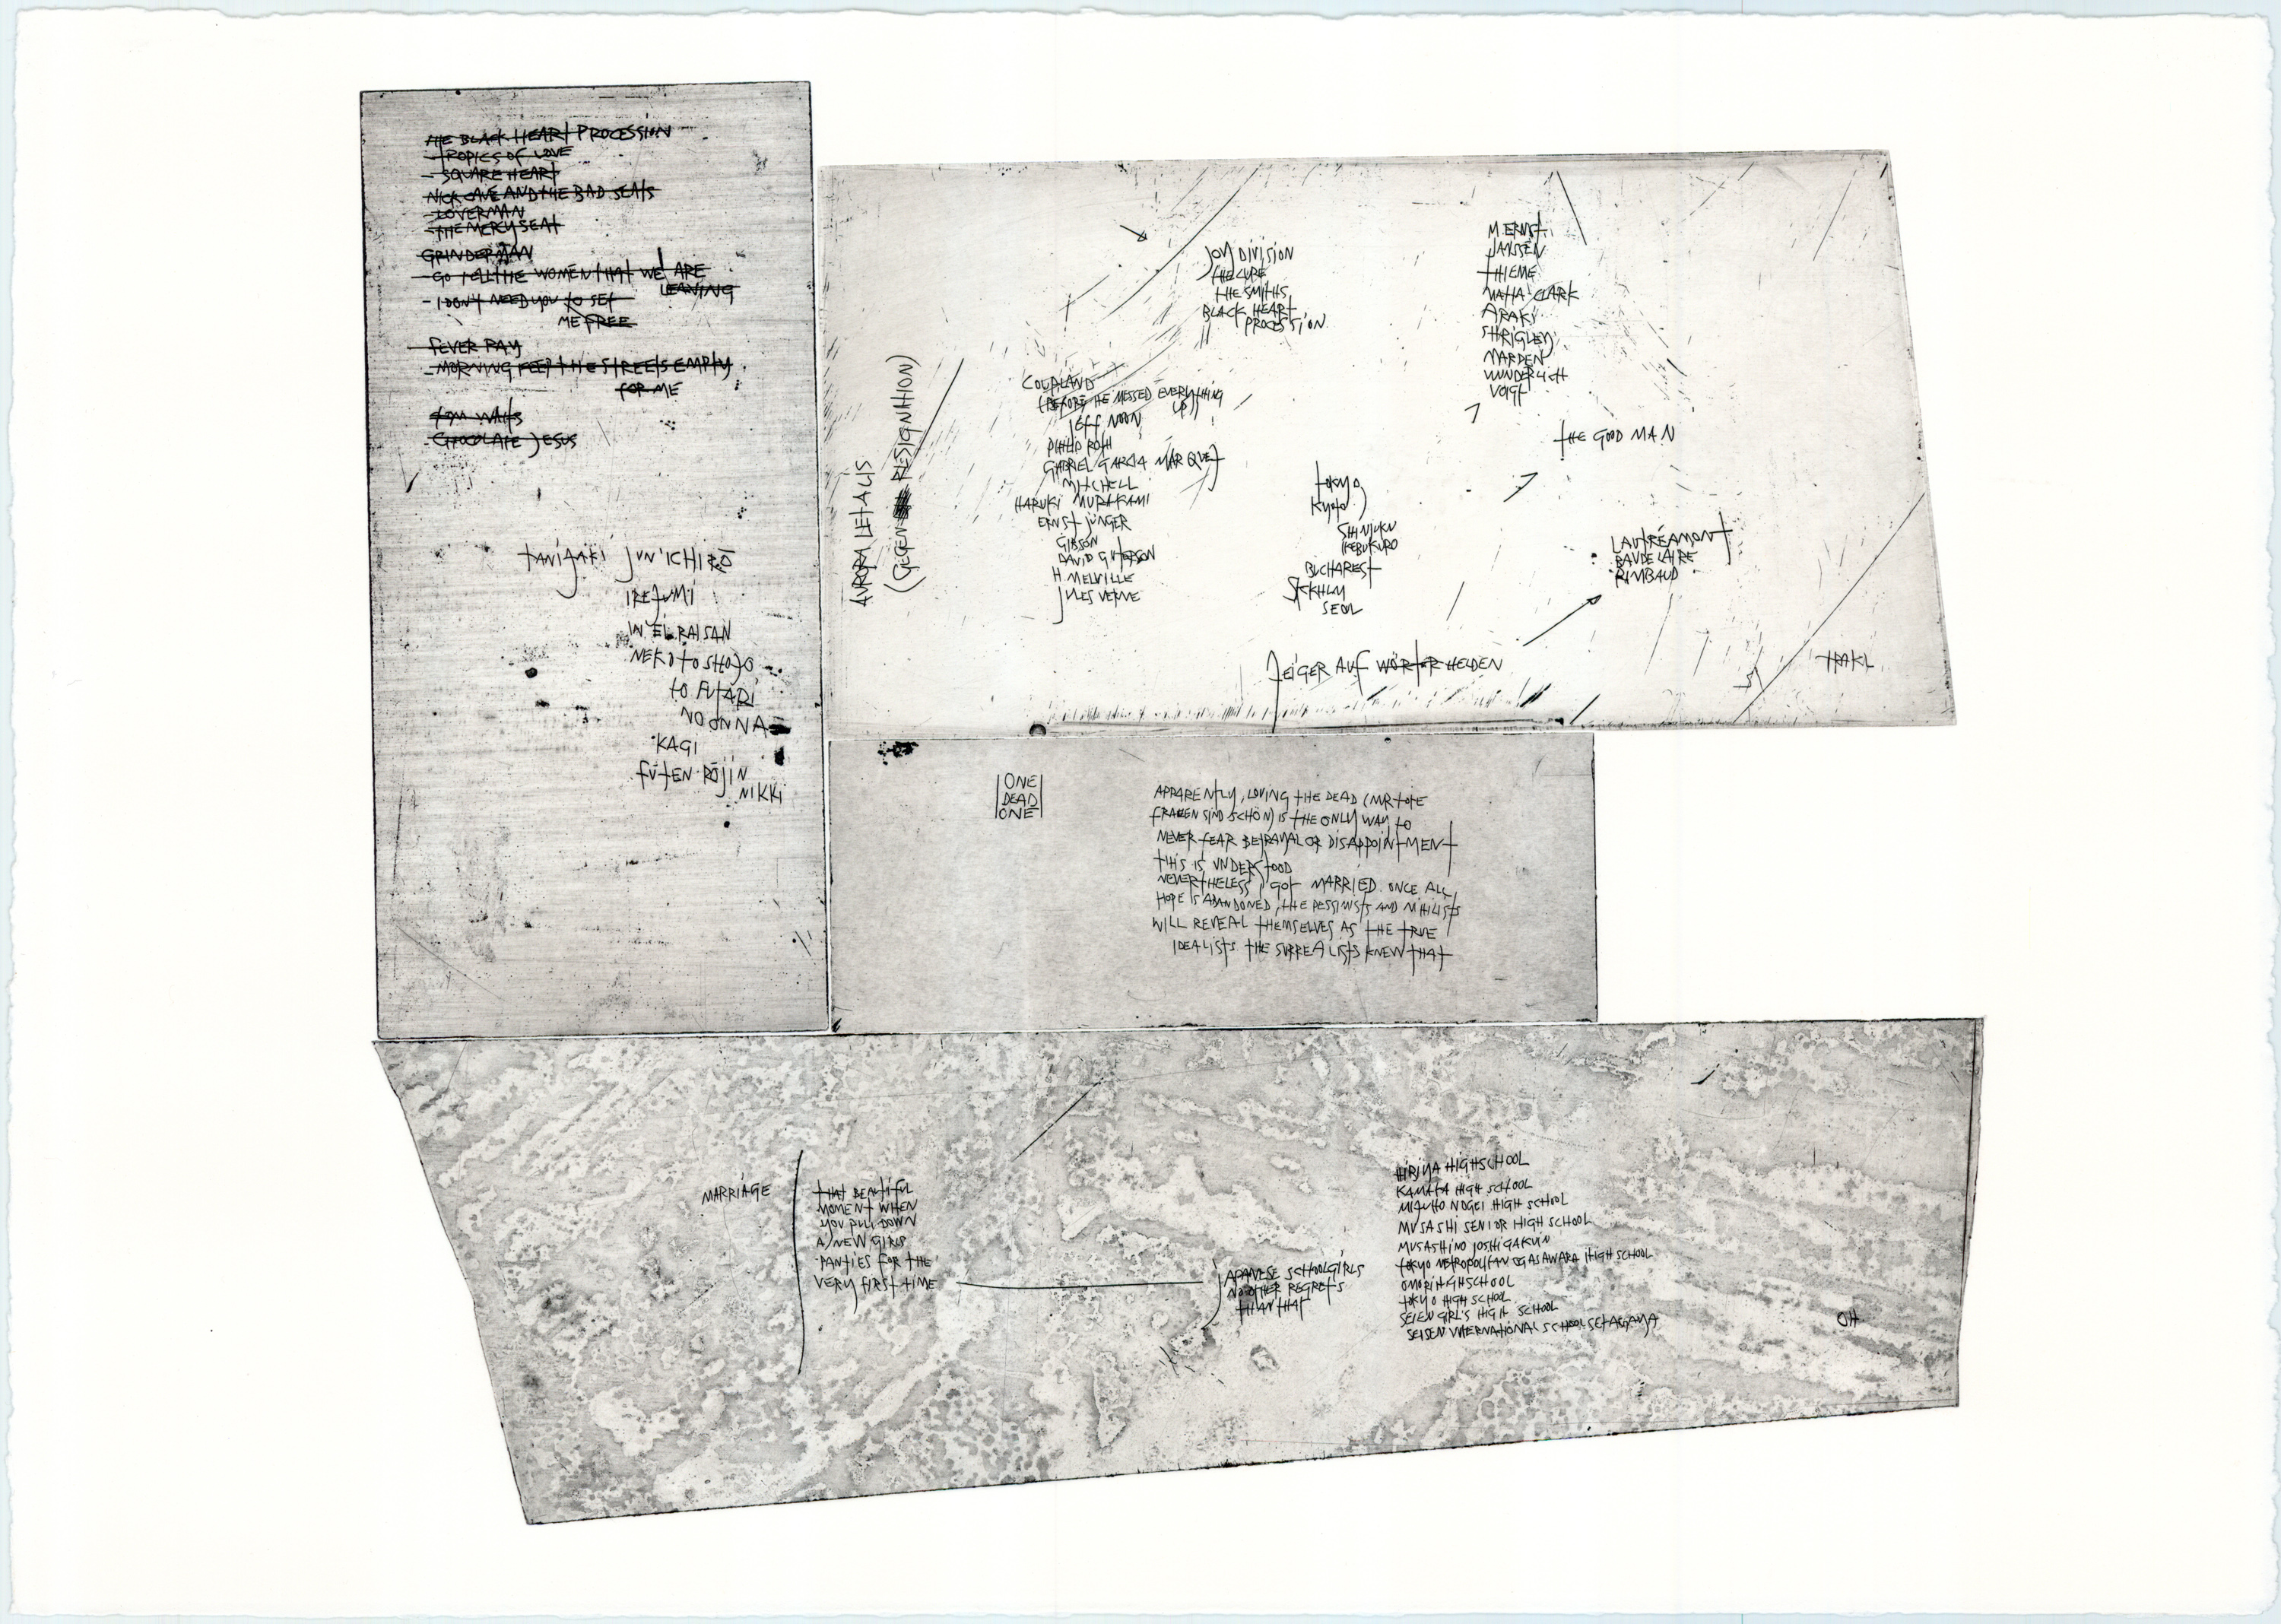 THE BLACK HEART PROCESSION
- TROPICS OF LOVE
- SQUARE HEART
NICK CAVE AND THE BAD SEATS
- LOVERMAN
- THE MERCY SEAT
GRINDERMAN
- GO TELL THE WOMEN THAT WE ARE
LEAVING
- I DON'T NEED YOU TO SET
ME FREE
FEVER RAY
- MORNING KEEP THE STREETS EMPTY
FOR ME
TOM WAITS
- CHOCOLATE JESUS
TANIZAKI JUN'ICHIRŌ
IREZUMI
IN'EI RAISAN
NEKO TO SHOZO
TO FUTARI
NO ONNA
KAGI
FŪTEN RŌJIN
NIKKI
AURORA LETALIS
(GEGEN RESIGNATION)
JOY DIVISION
THE CURE
THE SMITHS
BLACK HEART
PROCESSION
COUPLAND
(BEFORE HE MESSED EVERYTHING
UP)
JEFF NOON
PHILIP ROTH
GABRIEL GARCIA MARQUEZ
MITCHELL
HARUKI MURAKAMI
ERNST JÜNGER
GIBSON
DAVID GUTERSON
H. MELVILLE
JULES VERNE
M. ERNST
JANSSEN
THIEME
MATTA-CLARK
ARAKI
SHRIGLEY
MARDEN
WUNDERLICH
VOIGT
THE GOOD MAN
TOKYO
KYOTO
SHINJUKU
IKEBUKURO
BUCHAREST
STCKHLM
SEOUL
LAUTRÉAMONT
BAUDELAIRE
RIMBAUD
ZEIGER AUF WÖRTER HELDEN
TRAKL
ONE
DEAD
ONE
APPARENTLY, LOVING THE DEAD (NUR TOTE
FRAUEN SIND SCHÖN) IS THE ONLY WAY TO
NEVER FEAR BETRAYAL OR DISAPPOINTMENT
THIS IS UNDERSTOOD
NEVERTHELESS I GOT MARRIED. ONCE ALL
HOPE IS ABANDONED, THE PESSIMISTS AND NIHILISTS
WILL REVEAL THEMSELVES AS THE TRUE
IDEALISTS. THE SURREALISTS KNEW THAT
MARRIAGE
THAT BEAUTIFUL
MOMENT WHEN
YOU PULL DOWN
A NEW GIRLS
PANTIES FOR THE
VERY FIRST TIME
JAPANESE SCHOOLGIRLS
NO OTHER REGRETS
THAN THAT
HIRIYA HIGHSCHOOL
KAMATA HIGH SCHOOL
MIZUHO NOGEI HIGH SCHOOL
MUSASHI SENIOR HIGH SCHOOL
MUSASHINO JOSHI GAKUIN
TOKYO METROPOLITAN OGASAWARA HIGH SCHOOL
OMORI HIGHSCHOOL
TOKYO HIGH SCHOOL
SEIEN GIRL'S HIGH SCHOOL
SEISEN INTERNATIONAL SCHOOL SETAGAYA
OH